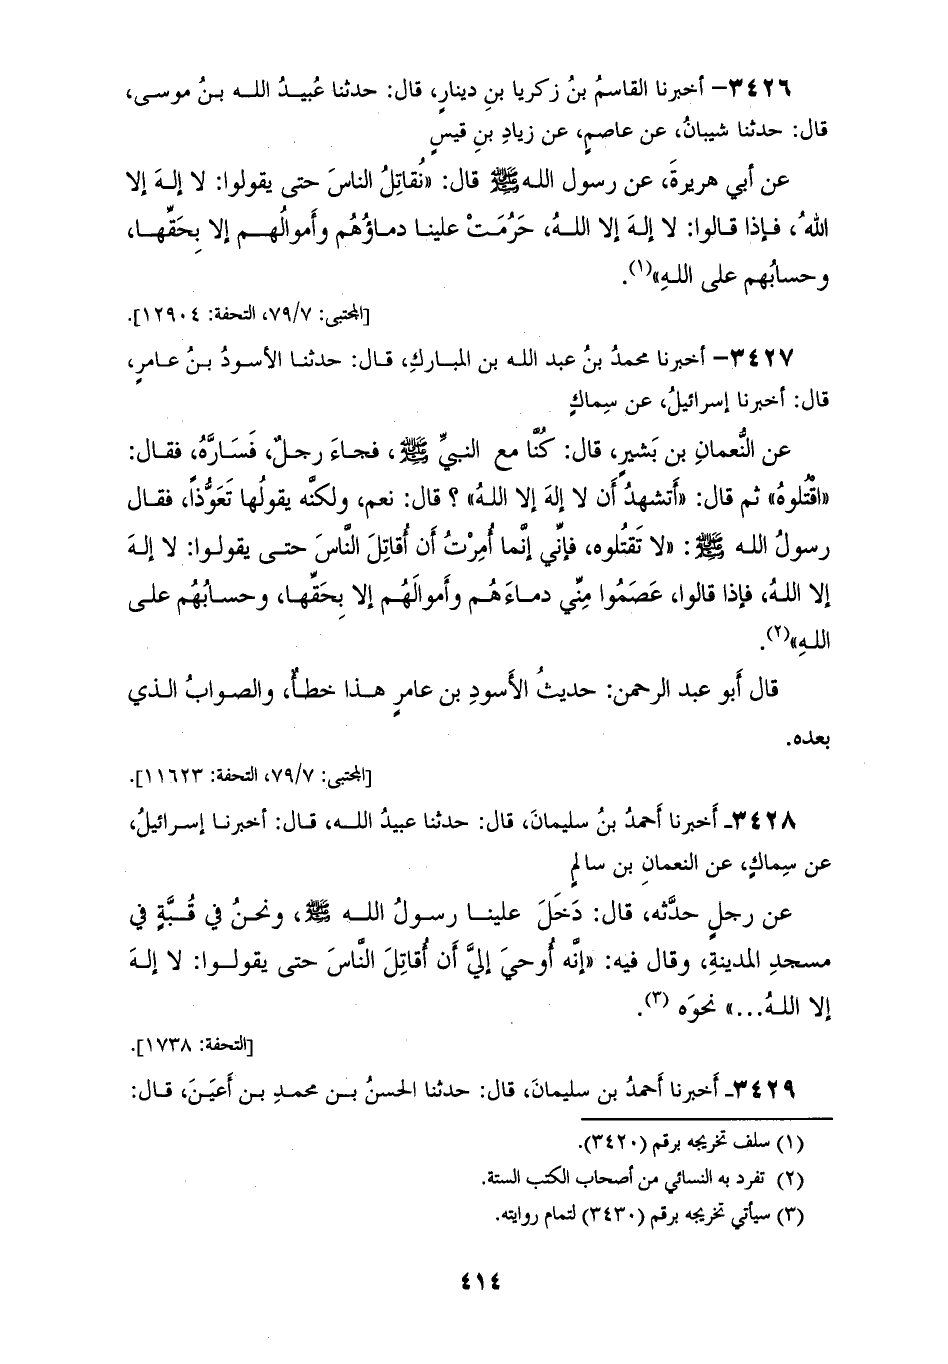 ٣٤٢٦- أخبرنا القاسمُ بنُ زكريا بنِ دينارٍ، قال: حدثنا عُبيدُ الله بنُ موسى،
قال: حدثنا شيبانُ، عن عاصمٍ، عن زيادِ بنِ قيسٍ
عن أبي هريرةَ، عن رسول اللهﷺ قال: «نُقاتِلُ الناسَ حتى يقولوا: لا إلهَ إلا
اللهُ، فإذا قالوا: لا إلهَ إلا اللهُ، حَرُمَتْ علينا دماؤُهُم وأموالُهم إلا بِحَقِّها،
وحسابُهم على اللهِ»(١).
[المجتبى: ٧٩/٧، التحفة: ١٢٩٠٤].
٣٤٢٧- أخبرنا محمدُ بنُ عبد الله بن المباركِ، قال: حدثنا الأسودُ بنُ عامرٍ،
قال: أخبرنا إسرائيلُ، عن سِماكٍ
عن النُّعمانِ بن بَشيرٍ، قال: كُنَّا مع النبيِّ ﷺ، فجاءَ رجلٌ، فَسَارَّهُ، فقال:
«اقْتُلوهُ» ثم قال: «أَتشهدُ أن لا إلهَ إلا اللهُ» ؟ قال: نعم، ولكنَّه يقولُها تَعَوُّذاً، فقال
رسولُ الله ﷺ: «لا تَقتُلوه، فإنِّي إنَّما أُمِرْتُ أن أُقاتِلَ النَّاسَ حتى يقولوا: لا إلهَ
إلا اللهُ، فإذا قالوا، عَصَمُوا مِنِّي دماءَهُم وأموالَهُم إلا بِحَقِّها، وحسابُهُم على
اللهِ»(٢).
قال أبو عبد الرحمن: حديثُ الأَسودِ بن عامرٍ هذا خطأٌ، والصوابُ الذي
بعده.
[المجتبى: ٧٩/٧، التحفة: ١١٦٢٣].
٣٤٢٨ـ أَخبرنا أَحمدُ بنُ سليمانَ، قال: حدثنا عبيدُ الله، قال: أخبرنا إسرائيلُ،
عن سِماكٍ، عن النعمانِ بن سالمٍ
عن رجلٍ حدَّثه، قال: دَخَلَ علينا رسولُ الله ﷺ، ونحنُ في قُبَّةٍ في
مسجدِ المدينةِ، وقال فيه: «إنَّه أُوحيَ إليَّ أن أُقاتِلَ النَّاسَ حتى يقولوا: لا إلهَ
إلا اللهُ...» نحوَه (٣).
[التحفة: ١٧٣٨].
٣٤٢٩ـ أَخبرنا أَحمدُ بن سليمانَ، قال: حدثنا الحسنُ بن محمدِ بن أَعيَنَ، قال:
(١) سلف تخريجه برقم (٣٤٢٠).
(٢) تفرد به النسائي من أصحاب الكتب الستة.
(٣) سيأتي تخريجه برقم (٣٤٣٠) لتمام روايته.
٤١٤